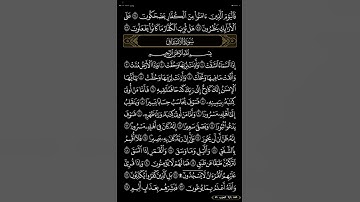 فَٱلْيَوْمَ ٱلَّذِينَ ءَامَنُوا۟ مِنَ ٱلْكُفَّارِ يَضْحَكُونَ ٣٤ عَلَى
ٱلْأَرَآئِكِ يَنظُرُونَ ٣٥ هَلْ ثُوِّبَ ٱلْكُفَّارُ مَا كَانُوا۟ يَفْعَلُونَ ٣٦
سُورَةُ الانشِقَاقِ
بِسْمِ ٱللَّهِ ٱلرَّحْمَٰنِ ٱلرَّحِيمِ
إِذَا ٱلسَّمَآءُ ٱنشَقَّتْ ١ وَأَذِنَتْ لِرَبِّهَا وَحُقَّتْ ٢ وَإِذَا ٱلْأَرْضُ مُدَّتْ ٣
وَأَلْقَتْ مَا فِيهَا وَتَخَلَّتْ ٤ وَأَذِنَتْ لِرَبِّهَا وَحُقَّتْ ٥ يَٰٓأَيُّهَا
ٱلْإِنسَٰنُ إِنَّكَ كَادِحٌ إِلَىٰ رَبِّكَ كَدْحًا فَمُلَٰقِيهِ ٦ فَأَمَّا مَنْ أُوتِىَ
كِتَٰبَهُۥ بِيَمِينِهِۦ ٧ فَسَوْفَ يُحَاسَبُ حِسَابًا يَسِيرًا ٨ وَيَنقَلِبُ
إِلَىٰٓ أَهْلِهِۦ مَسْرُورًا ٩ وَأَمَّا مَنْ أُوتِىَ كِتَٰبَهُۥ وَرَآءَ ظَهْرِهِۦ ١٠ فَسَوْفَ
يَدْعُوا۟ ثُبُورًا ١١ وَيَصْلَىٰ سَعِيرًا ١٢ إِنَّهُۥ كَانَ فِىٓ أَهْلِهِۦ مَسْرُورًا ١٣
إِنَّهُۥ ظَنَّ أَن لَّن يَحُورَ ١٤ بَلَىٰٓ إِنَّ رَبَّهُۥ كَانَ بِهِۦ بَصِيرًا ١٥ فَلَآ أُقْسِمُ
بِٱلشَّفَقِ ١٦ وَٱلَّيْلِ وَمَا وَسَقَ ١٧ وَٱلْقَمَرِ إِذَا ٱتَّسَقَ ١٨
لَتَرْكَبُنَّ طَبَقًا عَن طَبَقٍ ١٩ فَمَا لَهُمْ لَا يُؤْمِنُونَ ٢٠ وَإِذَا قُرِئَ
عَلَيْهِمُ ٱلْقُرْءَانُ لَا يَسْجُدُونَ ۩ ٢١ بَلِ ٱلَّذِينَ كَفَرُوا۟ يُكَذِّبُونَ ٢٢
وَٱللَّهُ أَعْلَمُ بِمَا يُوعُونَ ٢٣ فَبَشِّرْهُم بِعَذَابٍ أَلِيمٍ ٢٤